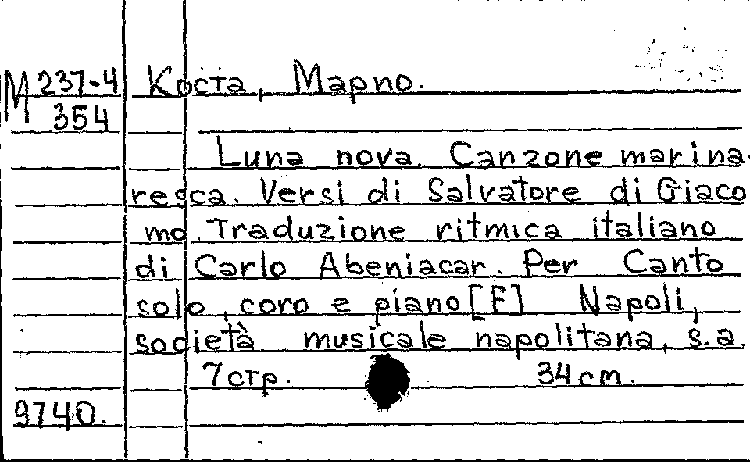 М 237-4 Коста, Марио.
354
Luna nova. Canzone marina-
resca. Versi di Salvatore di Giaco
mo. Traduzione ritmica italiano
di Carlo Abeniacar. Per Canto
solo, coro e piano [F] Napoli,
società musicale napolitana, s.a.
7 стр. 34 cm.
9740.